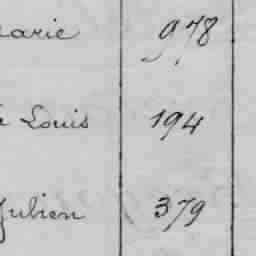 Marie 978
Louis 194
Julien 379